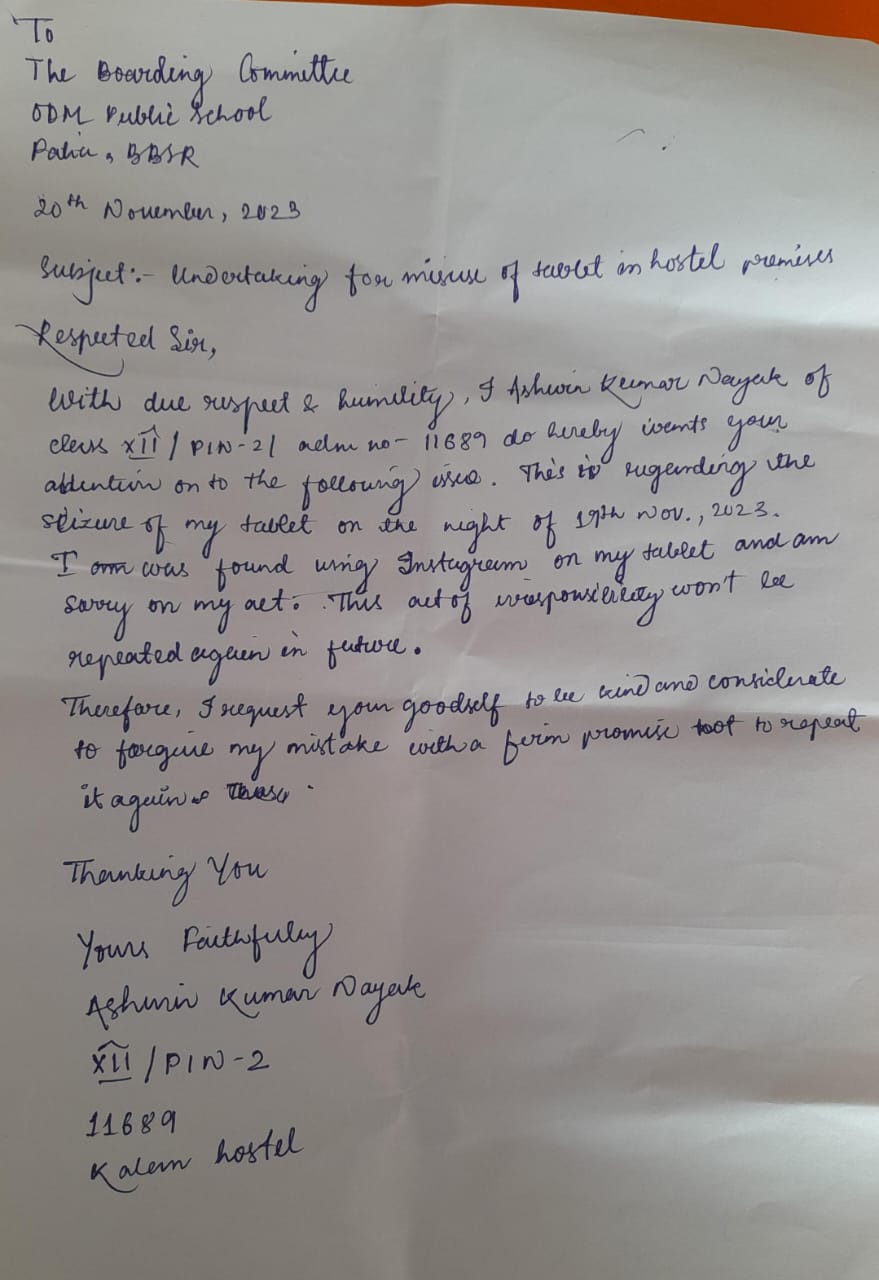 To
The Boarding Committee
ODM Public School
Patia, BBSR
20th November, 2023
Subject:- Undertaking for misuse of tablet in hostel premises
Respected Sir,
With due respect & humility, I Ashwin Kumar Nayak of
class XII / PIN-2/ adm no- 11689 do hereby wants your
attention on to the following issue. This is regarding the
seizure of my tablet on the night of 19th Nov., 2023.
I was found using Instagram on my tablet and am
sorry on my act. This act of irresponsibility won't be
repeated again in future.
Therefore, I request your goodself to be kind and considerate
to forgive my mistake with a firm promise not to repeat
it again.
Thanking You
Yours Faithfully
Ashwin Kumar Nayak
XII / PIN-2
11689
Kalam hostel